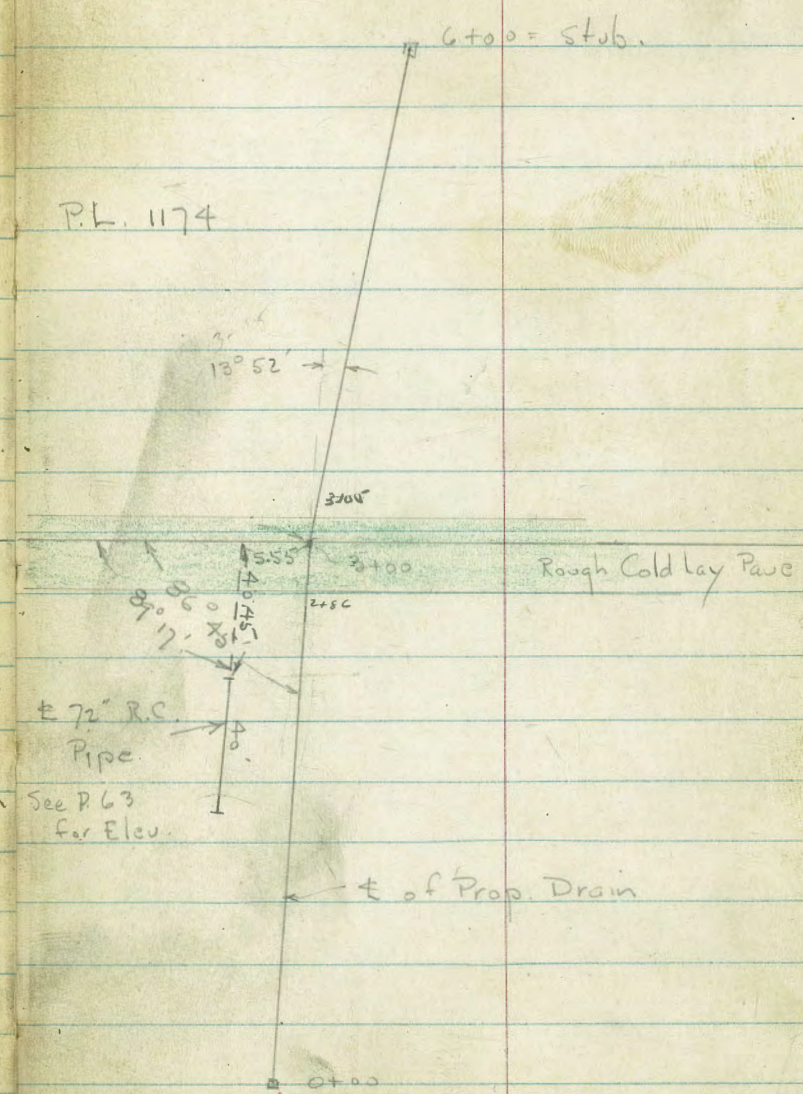 6+00 = Stub.
P.L. 1174
13° 52'
3+05
5.55
3+00
Rough Cold lay Pave
2+86
40
45
℄ 72" R.C.
Pipe
40
See P. 63
for Elev.
℄ of Prop. Drain
0+00